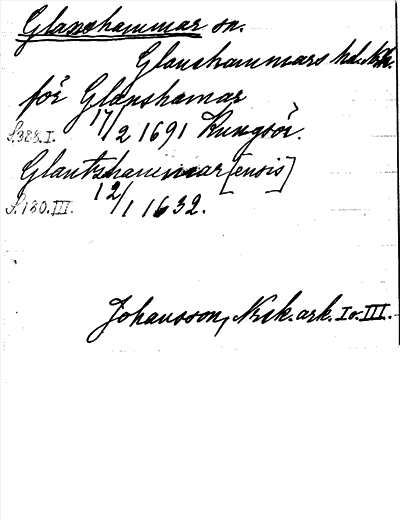 Glanshammar sn.
Glanshammars hd. Nke.
för Glanshamar
S.388.I. 17/2 1691 Kungsör.
Glantzhammar[ensis]
S.180.III. 12/1 1632.
Johansson, Nke k. ark. I o. III.